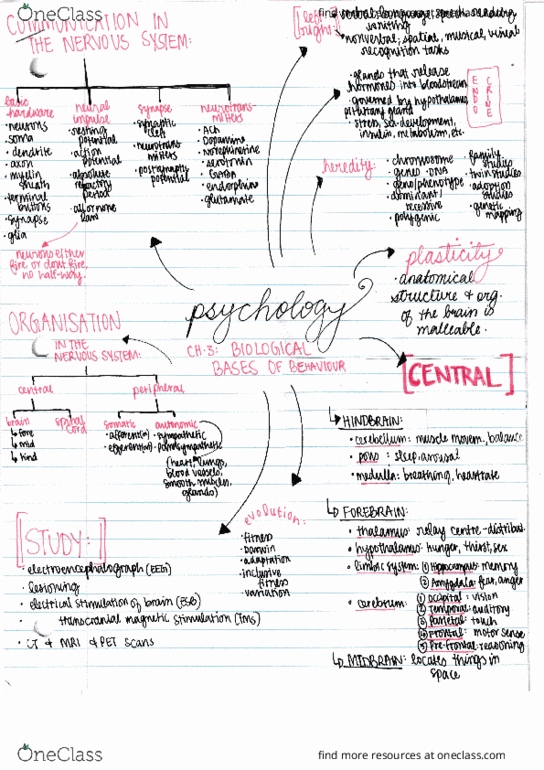 OneClass
find more resources at oneclass.com
COMMUNICATION IN
THE NERVOUS SYSTEM:
basic
hardware
• neurons
• soma
• dendrite
• axon
• myelin
sheath
• terminal
buttons
• synapse
• glia
neural
impulse
• resting
potential
• action
potential
• absolute
refractory
period
• all or none
law
neurons either
fire or dont fire,
no half-way.
synapse
• synaptic
cleft
• neurotrans
mitters
• postsynaptic
potential
neurotrans-
mitters
• ACh
• Dopamine
• Norepinephrine
• serotonin
• GABA
• endorphins
• glutamate
left
right
verbal: language, speech, reading,
writing
nonverbal: spatial, musical, visual
recognition tasks
ENDO
CRINE
• glands that release
hormones into bloodstream
• governed by hypothalamus,
pituitary gland
• stress, sex-development,
insulin, metabolism, etc.
heredity:
• chromosome
• genes • DNA
• geno/phenotype
• dominant/
recessive
• polygenic
• family
studies
• twin studies
• adoption
studies
• genetic
mapping
plasticity
• anatomical
structure & org.
of the brain is
malleable.
psychology
CH.3: BIOLOGICAL
BASES OF BEHAVIOUR
ORGANISATION
IN THE
NERVOUS SYSTEM:
central
peripheral
brain
↳ fore
↳ mid
↳ hind
spinal
cord
somatic
• afferent(in)
• efferent(out)
autonomic
• sympathetic
• parasympathetic
(heart, lungs,
blood vessels,
smooth muscles,
glands)
[CENTRAL]
↳ HINDBRAIN:
• cerebellum: muscle movem, balance
• pons: sleep, arousal
• medulla: breathing, heartrate
↳ FOREBRAIN:
• thalamus: relay centre - distribut.
• hypothalamus: hunger, thirst, sex
• limbic system: ① Hippocampus: memory
② Amygdala: fear, anger
• cerebrum: ① Occipital: vision
② Temporal: auditory
③ Parietal: touch
④ Frontal: motor sense
⑤ Pre-frontal: reasoning
↳ MIDBRAIN: locates things in
space
evolution:
• fitness
• Darwin
• adaptation
• inclusive
fitness
• variation
[STUDY:]
• electroencephalograph (EEG)
• lesioning
• electrical stimulation of brain (ESB)
• transcranial magnetic stimulation (TMS)
• CT & MRI & PET scans
OneClass
find more resources at oneclass.com